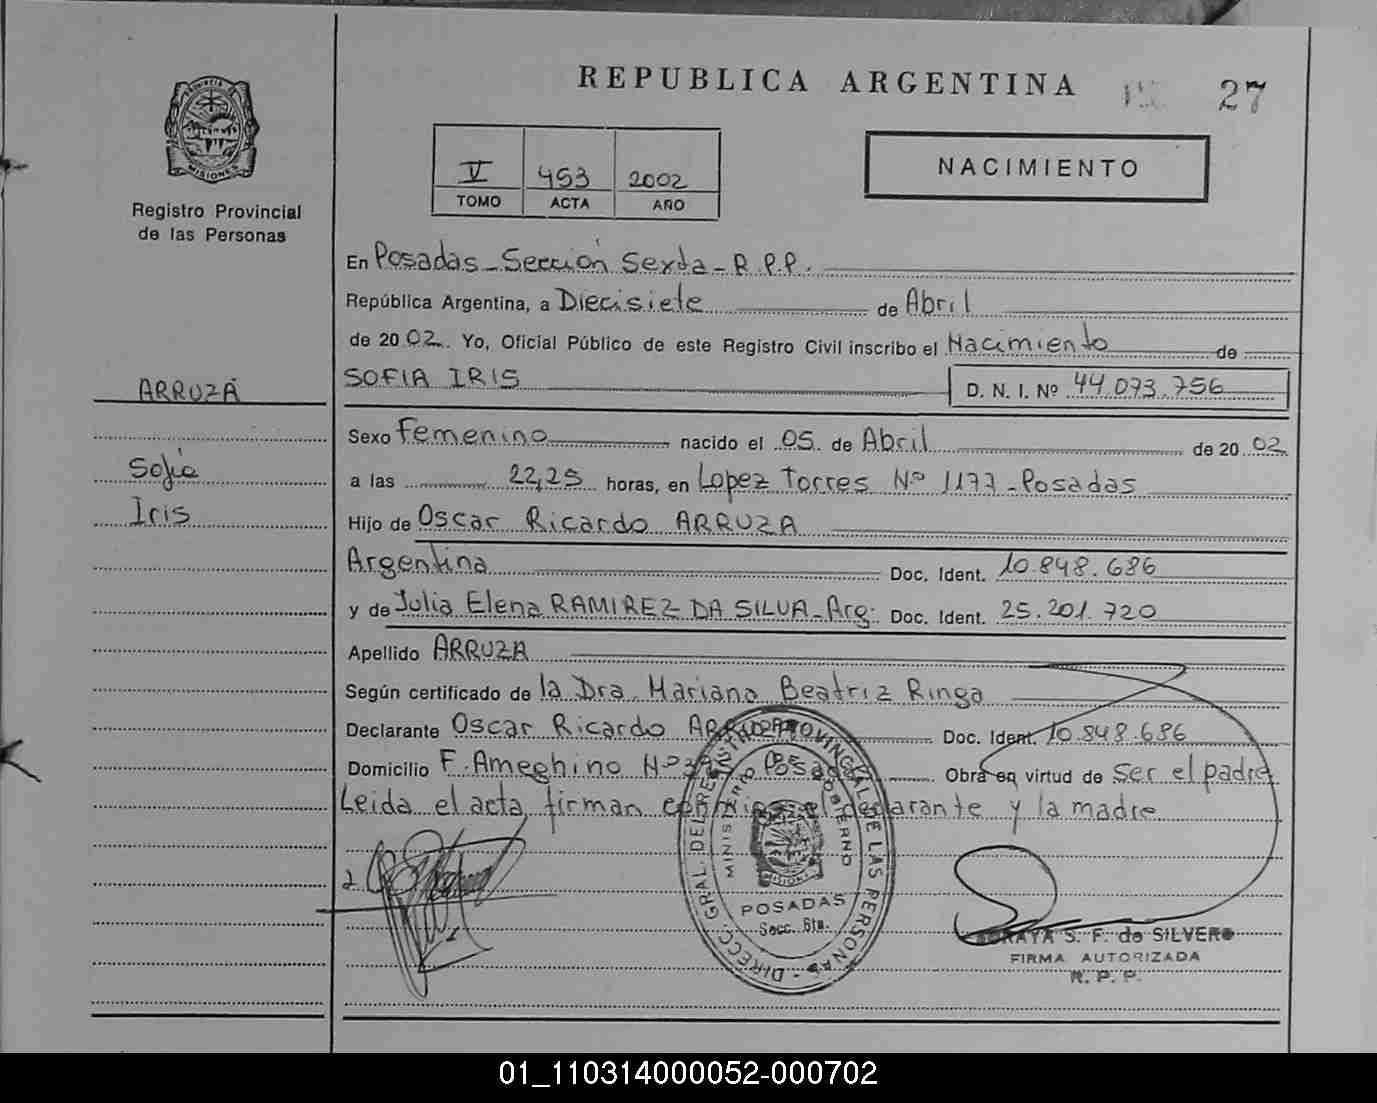 REPUBLICA ARGENTINA
27
PROVINCIA DE
MISIONES
Registro Provincial
de las Personas
V 453 2002
TOMO ACTA AÑO
NACIMIENTO
En Posadas - Sección Sexta - R.P.P.
República Argentina, a Diecisiete de Abril
de 2002. Yo, Oficial Público de este Registro Civil inscribo el Nacimiento de
SOFIA IRIS D. N. I. Nº 44.073.756
ARRUZA
Sofia
Iris
Sexo Femenino nacido el 05 de Abril de 2002
a las 22,25 horas, en Lopez Torres Nº 1177 - Posadas
Hijo de Oscar Ricardo ARRUZA
Argentina Doc. Ident. 10.848.686
y de Julia Elena RAMIREZ DA SILVA - Arg. Doc. Ident. 25.201.720
Apellido ARRUZA
Según certificado de la Dra. Mariana Beatriz Ringa
Declarante Oscar Ricardo ARRUZA Doc. Ident. 10.848.686
Domicilio F. Ameghino Nº Posadas Obra en virtud de ser el padre
Leida el acta, firman conmigo el declarante y la madre
DIRECC. GRAL. DEL REGISTRO PROVINCIAL DE LAS PERSONAS
MINISTERIO DE GOBIERNO
MISIONES
POSADAS
Secc. 6ta.
SORAYA S. F. de SILVERO
FIRMA AUTORIZADA
R. P. P.
01_110314000052-000702